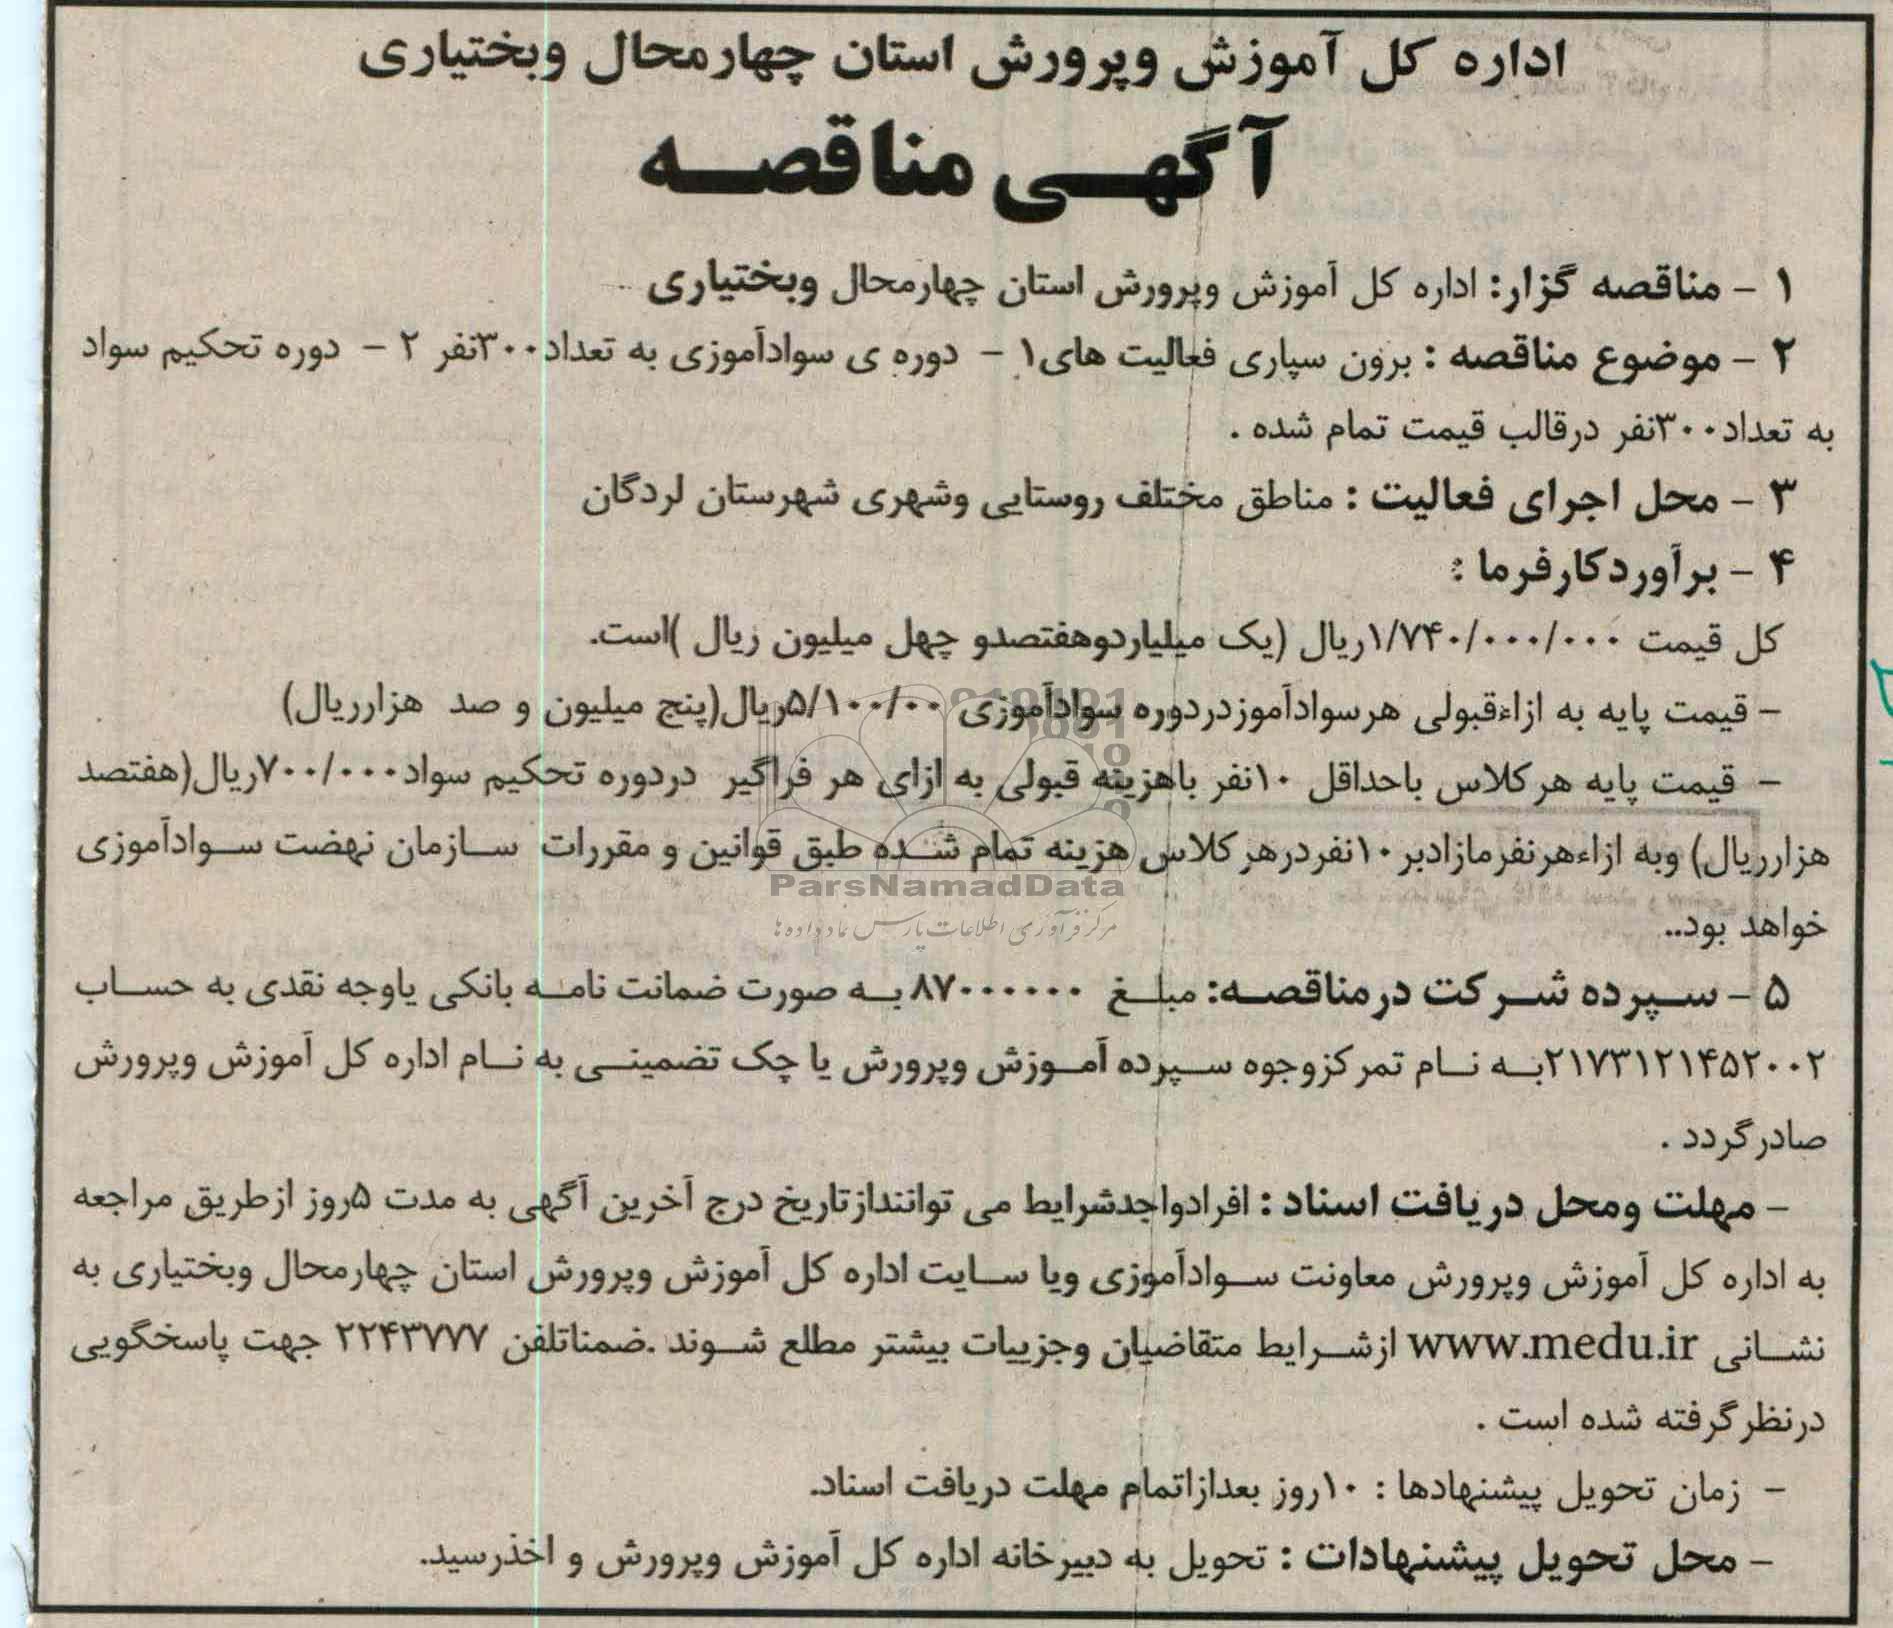 اداره کل آموزش وپرورش استان چهارمحال وبختیاری
آگهی مناقصه
۱ - مناقصه گزار: اداره کل آموزش وپرورش استان چهارمحال وبختیاری
۲ - موضوع مناقصه : برون سپاری فعالیت های۱ - دوره ی سوادآموزی به تعداد۳۰۰نفر ۲ - دوره تحکیم سواد
به تعداد۳۰۰نفر درقالب قیمت تمام شده .
۳ - محل اجرای فعالیت : مناطق مختلف روستایی وشهری شهرستان لردگان
۴ - برآوردکارفرما :
کل قیمت ۱/۷۴۰/۰۰۰/۰۰۰ریال (یک میلیاردوهفتصدو چهل میلیون ریال )است.
- قیمت پایه به ازاءقبولی هرسوادآموزدردوره سوادآموزی ۵/۱۰۰/۰۰ریال(پنج میلیون و صد هزارریال)
- قیمت پایه هرکلاس باحداقل ۱۰نفر باهزینه قبولی به ازای هر فراگیر دردوره تحکیم سواد۷۰۰/۰۰۰ریال(هفتصد
هزارریال) وبه ازاءهرنفرمازادبر۱۰نفردرهرکلاس هزینه تمام شده طبق قوانین و مقررات سازمان نهضت سوادآموزی
ParsNamadData
مرکز فرآوری اطلاعات پارس نماد داده ها
خواهد بود..
۵ - سپرده شرکت درمناقصه: مبلغ ۸۷۰۰۰۰۰۰به صورت ضمانت نامه بانکی یاوجه نقدی به حساب
۲۱۷۳۱۲۱۴۵۲۰۰۲به نام تمرکزوجوه سپرده آموزش وپرورش یا چک تضمینی به نام اداره کل آموزش وپرورش
صادرگردد .
- مهلت ومحل دریافت اسناد : افرادواجدشرایط می توانندازتاریخ درج آخرین آگهی به مدت ۵روز ازطریق مراجعه
به اداره کل آموزش وپرورش معاونت سوادآموزی ویا سایت اداره کل آموزش وپرورش استان چهارمحال وبختیاری به
نشانی www.medu.ir ازشرایط متقاضیان وجزییات بیشتر مطلع شوند .ضمناتلفن ۲۲۴۳۷۷۷ جهت پاسخگویی
درنظرگرفته شده است .
- زمان تحویل پیشنهادها : ۱۰روز بعدازاتمام مهلت دریافت اسناد.
- محل تحویل پیشنهادات : تحویل به دبیرخانه اداره کل آموزش وپرورش و اخذرسید.